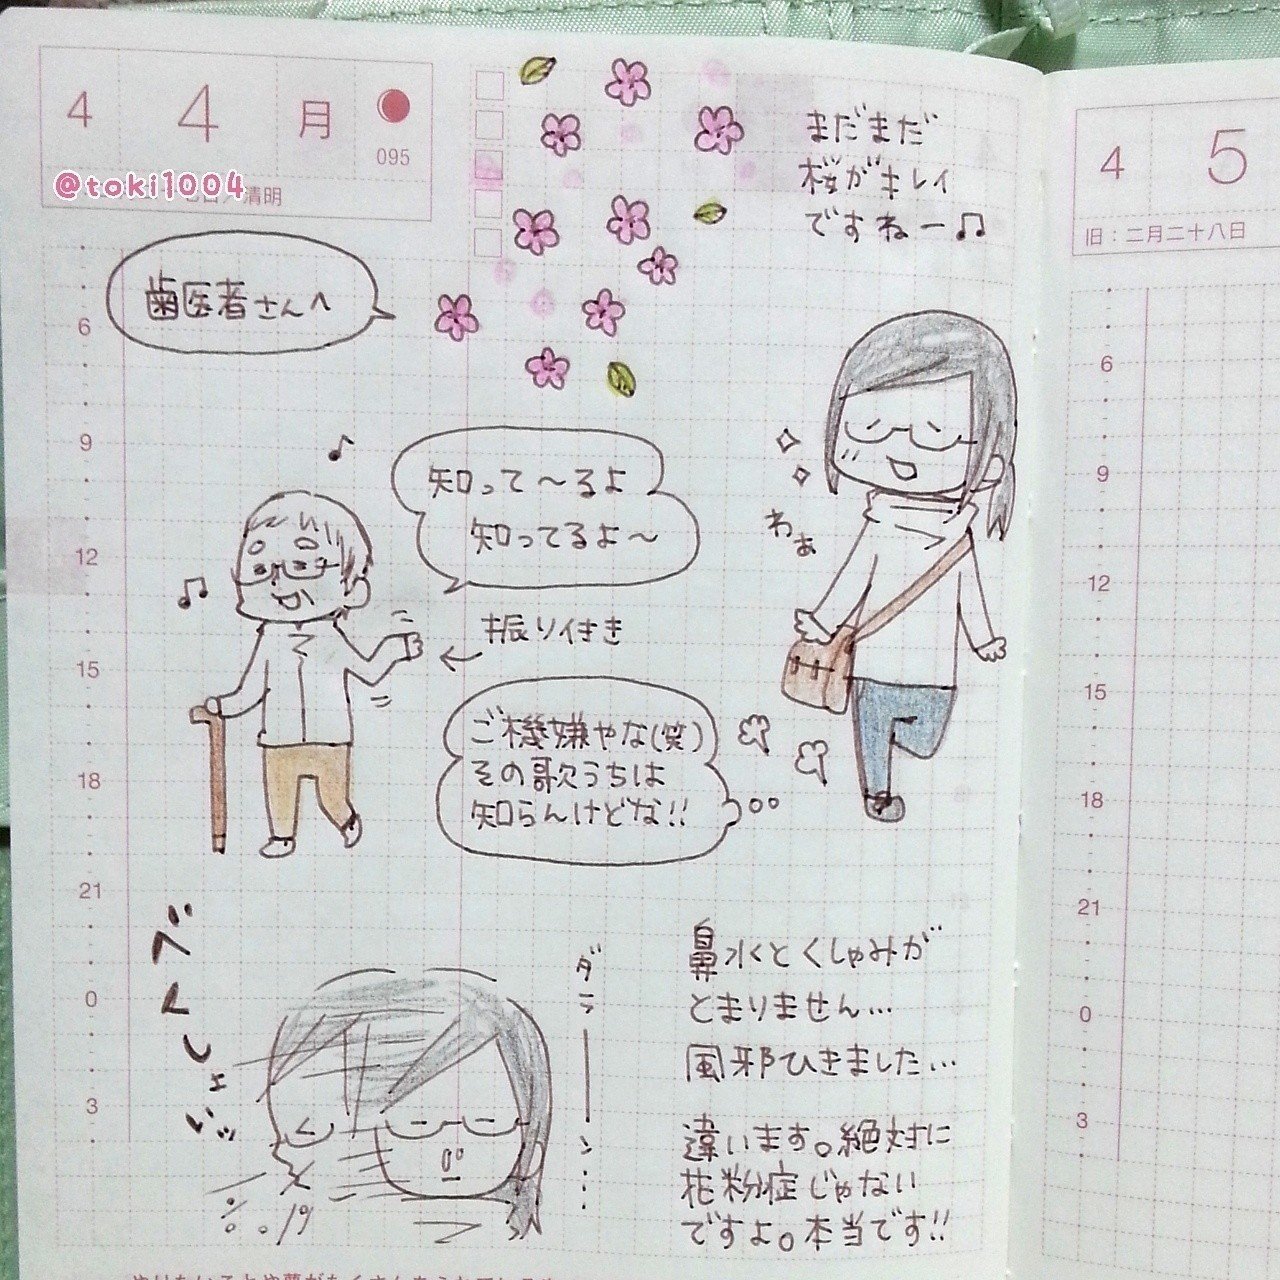 4 4 月
095
@toki1004
清明
まだまだ
桜がキレイ
ですねー♫
歯医者さんへ
知って〜るよ
知ってるよ〜
わぁ
振り付き
ご機嫌やな(笑)
その歌うちは
知らんけどな!!
ダラーーン…
鼻水とくしゃみが
とまりません…
風邪ひきました…
違います。絶対に
花粉症じゃない
ですよ。本当です!!
6
9
12
15
18
21
0
3
4 5
旧:二月二十八日
6
9
12
15
18
21
0
3